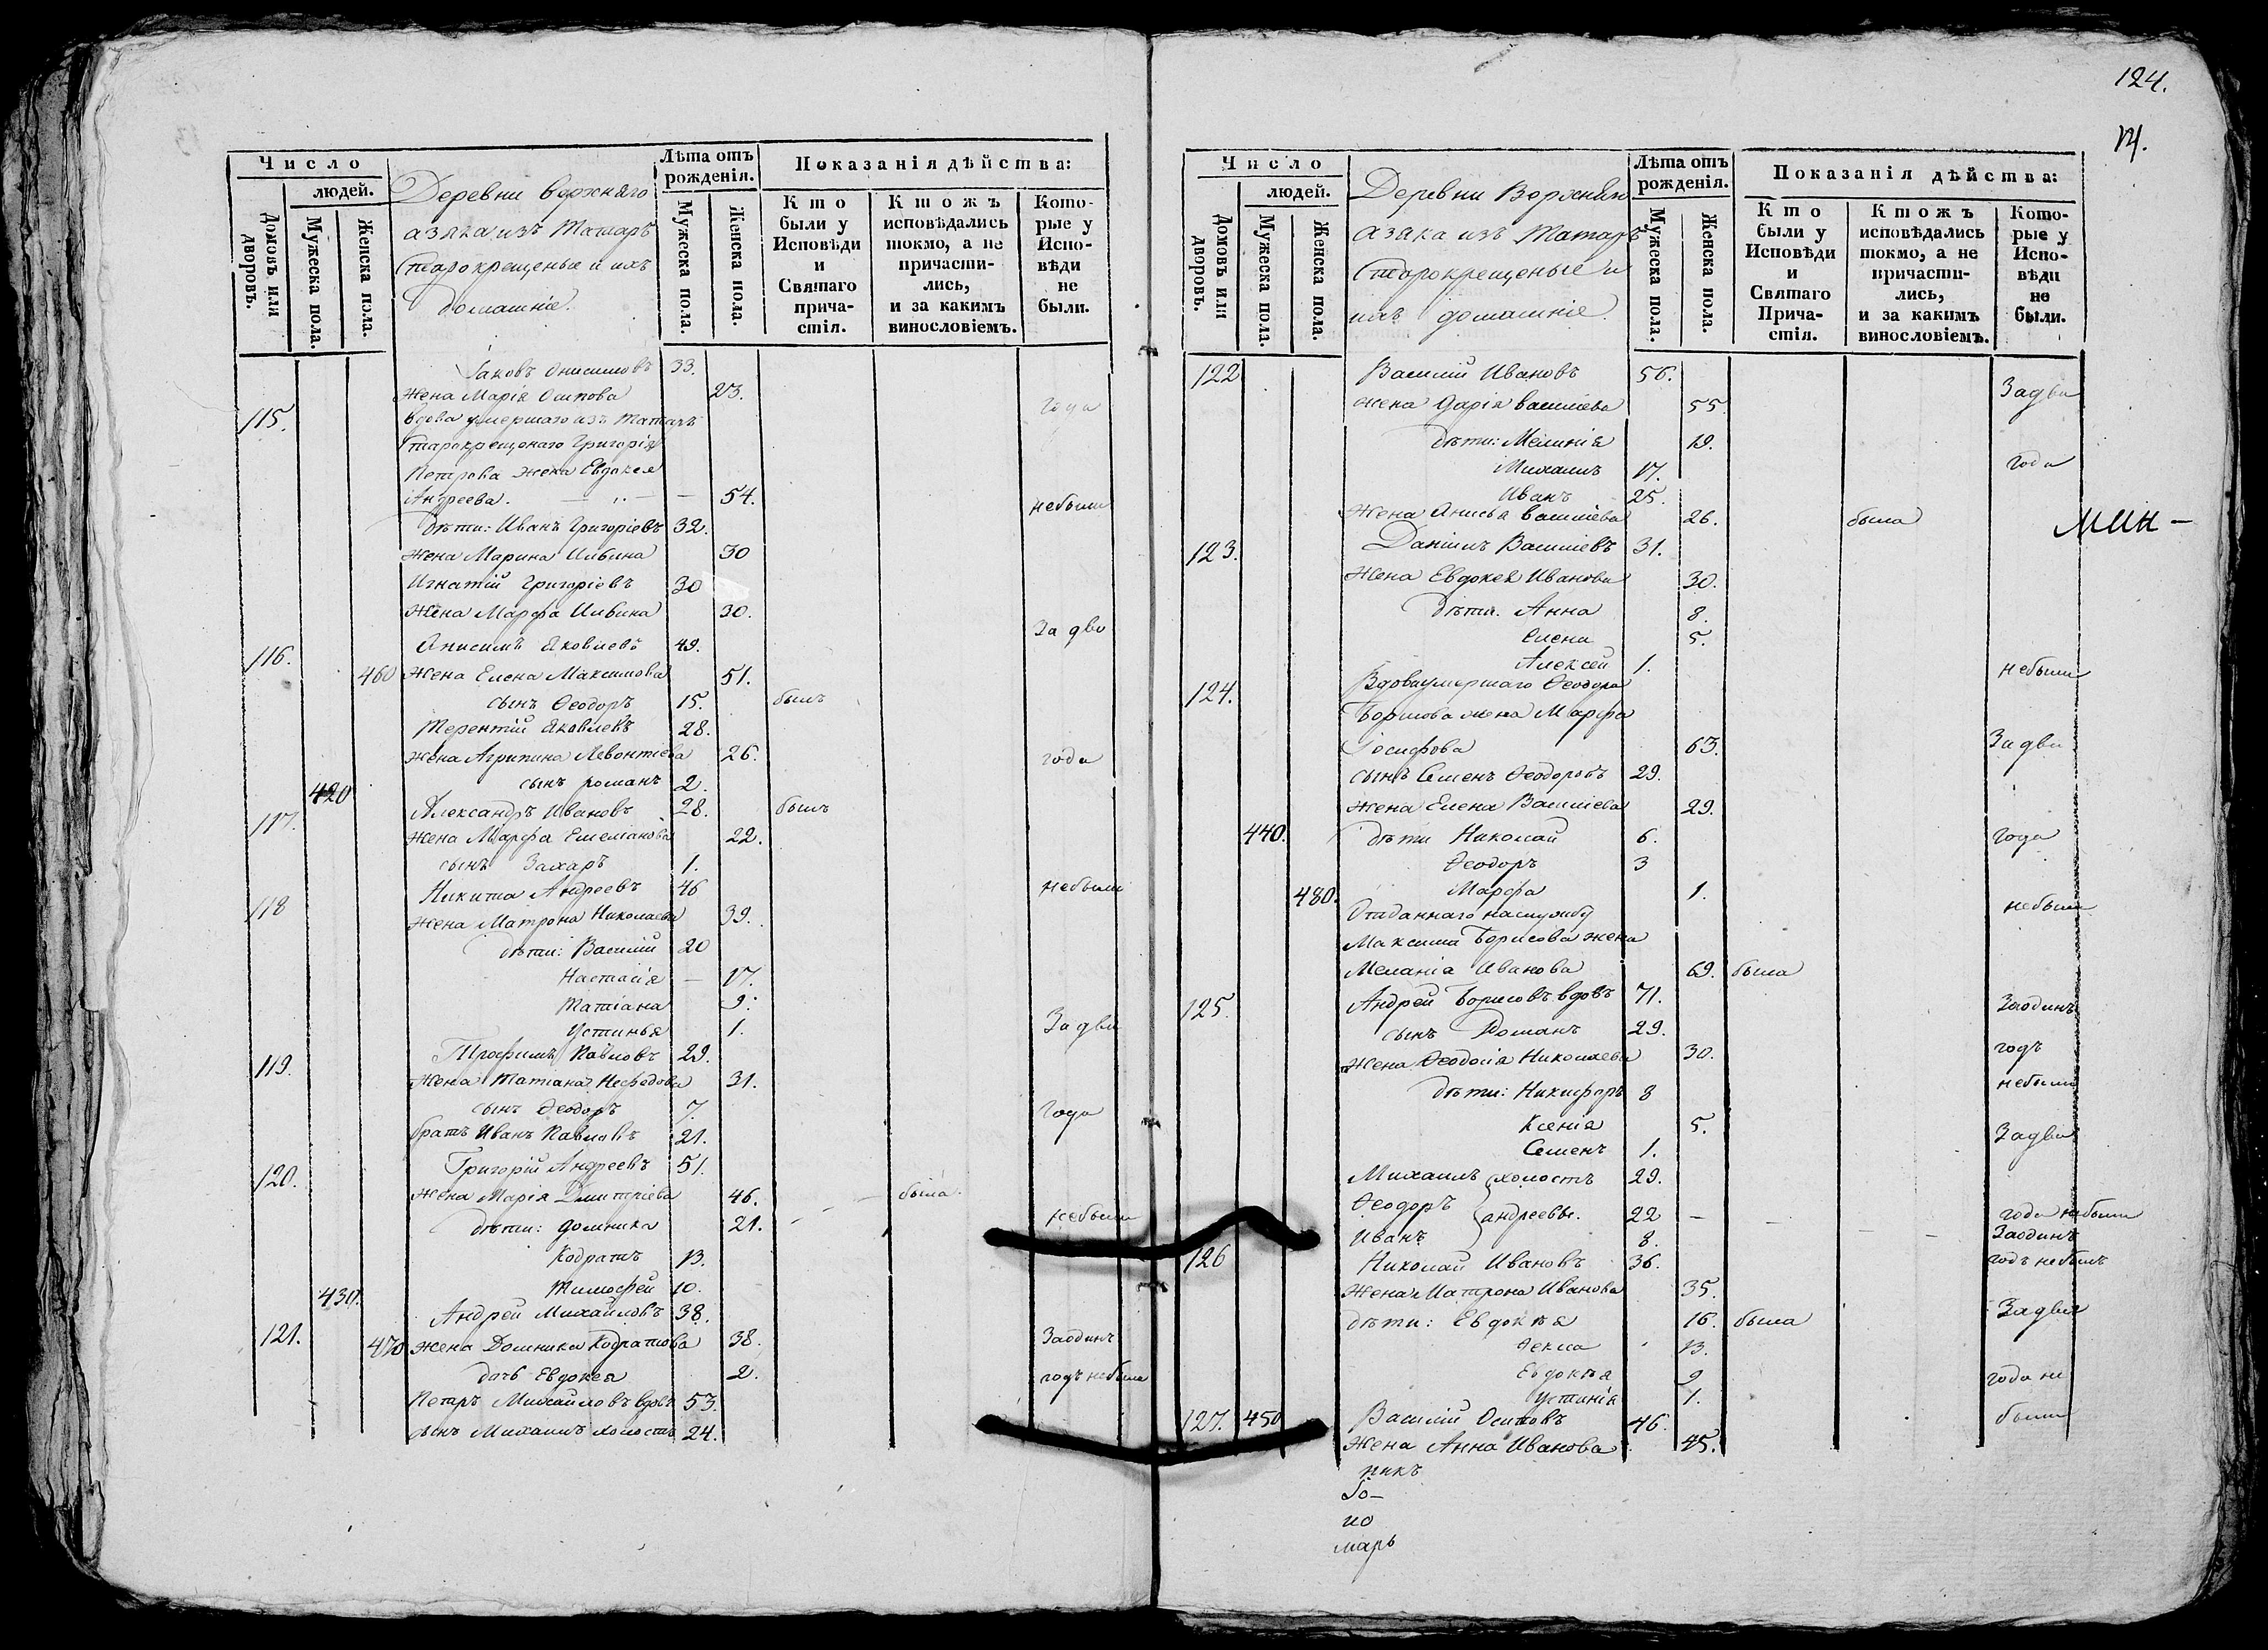 Число
людей.
Домовъ или дворовъ.
Мужеска пола.
Женска пола.
Деревни верхняго
азяка изъ Татаръ
старокрещеные и ихъ
домашніе.
Лѣта отъ рожденія.
Мужеска пола.
Женска пола.
Показанія дѣйства:
Кто были у Исповѣди и Святаго причастія.
Ктожъ исповѣдались токмо, а не причастились, и за какимъ винословіемъ.
Которые у Исповѣди не были.
Іаковъ Онисимовъ 33.
жена Марія Осипова 23.
115. вдова умершаго изъ Татаръ года
старокрещенаго Григорія
Петрова жена Евдокея
Андреева. 54. небыли
дѣти: Иванъ Григоріевъ 32.
жена Марина Ильина 30
Игнатій Григоріевъ 30
Жена Марфа Ильина 30.
За два
116. Анисимъ Яковлевъ 49.
460 жена Елена Максимова 51.
сынъ Ѳеодоръ 15. былъ
Терентій Яковлевъ 28.
жена Агрипина Левонтьева 26. года
420 сынъ романъ 2.
117. Александръ Ивановъ 28. былъ
жена Марфа Емельянова 22.
сынъ Захаръ 1.
118 Никита Андреевъ 46 небыли
жена Матрона Николаева 39.
дѣти: Василій 20
Настасія 17.
Татіана 9.
Устинья 1. За два
119. Трофимъ Павловъ 29.
жена Татіана 31.
сынъ Ѳеодоръ 7. года
братъ Иванъ Павловъ 21.
120. Григорій Андреевъ 51.
жена Марія Дмитріева 46. была.
дѣти: домника 21. небыли
Кодратъ 13.
Тимофей 10.
430. Андрей Михайловъ 38.
121. 470 жена Домника Кодратова 38. Заодинъ
дочь Евдокея 2. годъ небыли
Петръ Михайловъ вдовъ 53.
сынъ Михаилъ холостъ 24.
124.
14.
Число
людей.
Домовъ или дворовъ.
Мужеска пола.
Женска пола.
Деревни Верхняго
азяка изъ Татаръ
старокрещеные и
ихъ домашніе
Лѣта отъ рожденія.
Мужеска пола.
Женска пола.
Показанія дѣйства:
Кто были у Исповѣди и Святаго Причастія.
Ктожъ исповѣдались токмо, а не причастились, и за какимъ винословіемъ.
Которые у Исповѣди не были.
122 Василій Ивановъ 56. За два
жена Дарія васильева 55.
дѣти: Меланія 19.
Михаилъ 17. года
Иванъ 25.
Жена Анисья васильева 26. была мин-
123. Даніилъ Васильевъ 31.
Жена Евдокея Иванова 30.
дѣти. Анна 8.
Елена 5.
Алексей 1. небыли
124. Вдова умершаго Ѳеодора
Борисова жена Марфа
Іосифова 63. За два
сынъ Семенъ Ѳеодоровъ 29.
жена Елена Васильева 29.
440. дѣти Николай 6. года
Ѳеодоръ 3
480. Марфа 1.
Отданнаго наслужбу небыли
Максима Борисова жена
Меланіа Иванова 69. была
125. Андрей Борисовъ вдовъ 71. Заодинъ
сынъ Романъ 29.
Жена Ѳеодосія Николаева 30. годъ
дѣти: Никифоръ 8 небыли
Ксенія 5.
Семенъ 1. За два
Михаилъ холостъ 29.
Ѳеодоръ андреевы. 22 года небыли
Иванъ 8. Заодинъ
126 Николай Ивановъ 36. годъ небылъ
Жена Матрона Иванова 35.
дѣти: Евдокѣя 16. была За два
Ѳекла 13.
Евдокѣя 9 года не
Устинія 1.
127. 450 Василій Осиповъ 46. были
Жена Анна Иванова 45.
никъ
бо-
но
марь